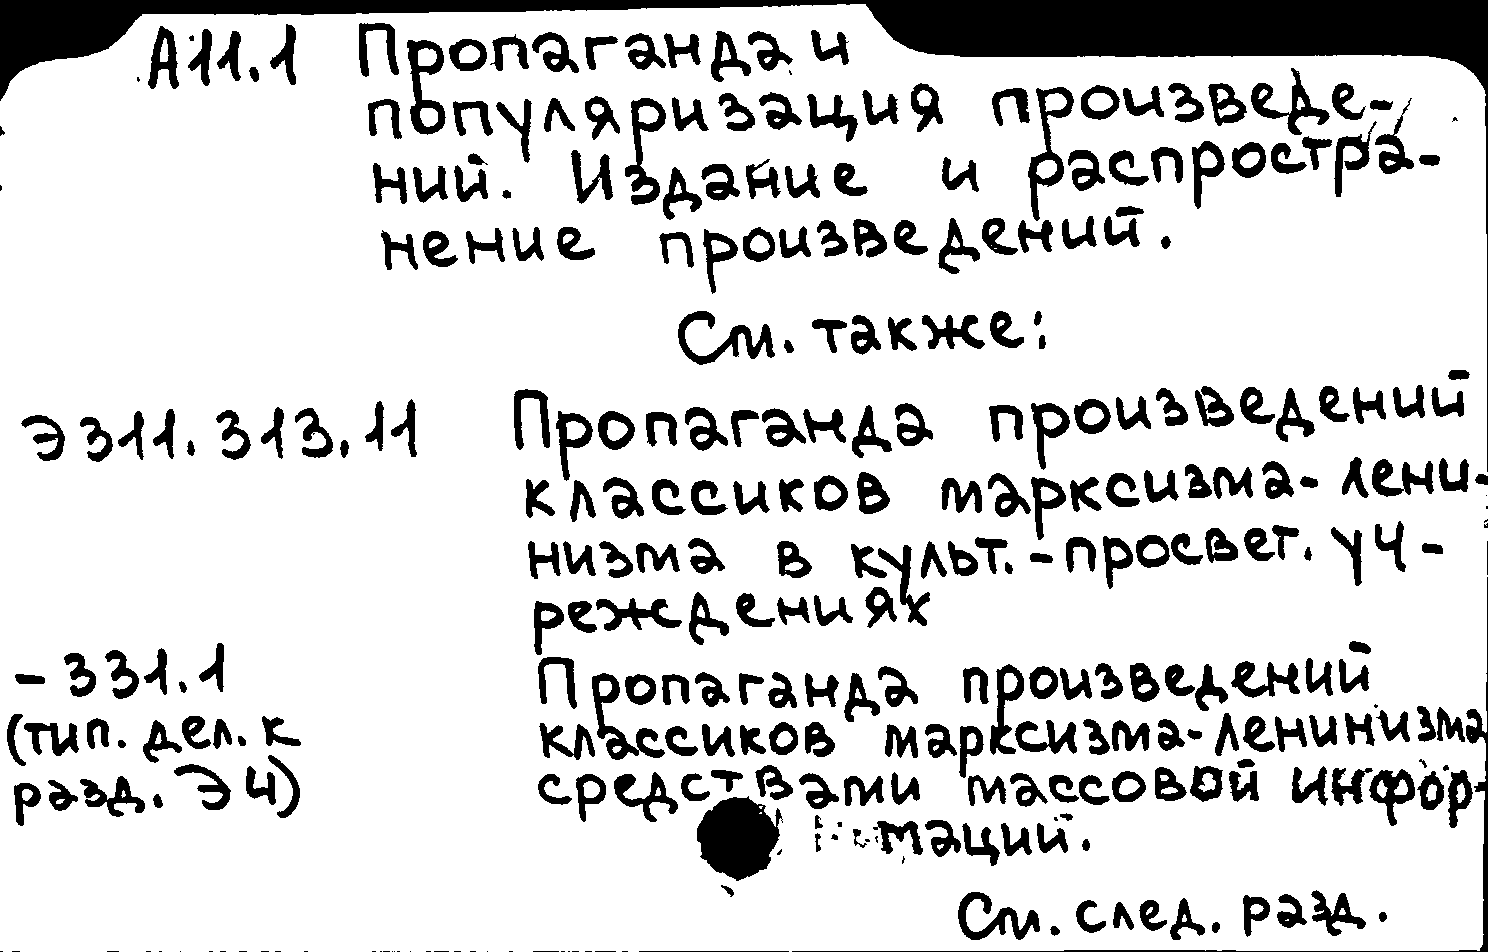 А11.1 Пропаганда и
популяризация произведе-
ний. Издание и распростра-
нение произведений.
См. также:
Э311.313.11 Пропаганда произведений
классиков марксизма-лени-
низма в культ.-просвет. уч-
реждениях
-331.1 Пропаганда произведений
(тип. дел. к классиков марксизма-ленинизма
разд. Э4) средствами массовой инфор-
маций.
См. след. разд.